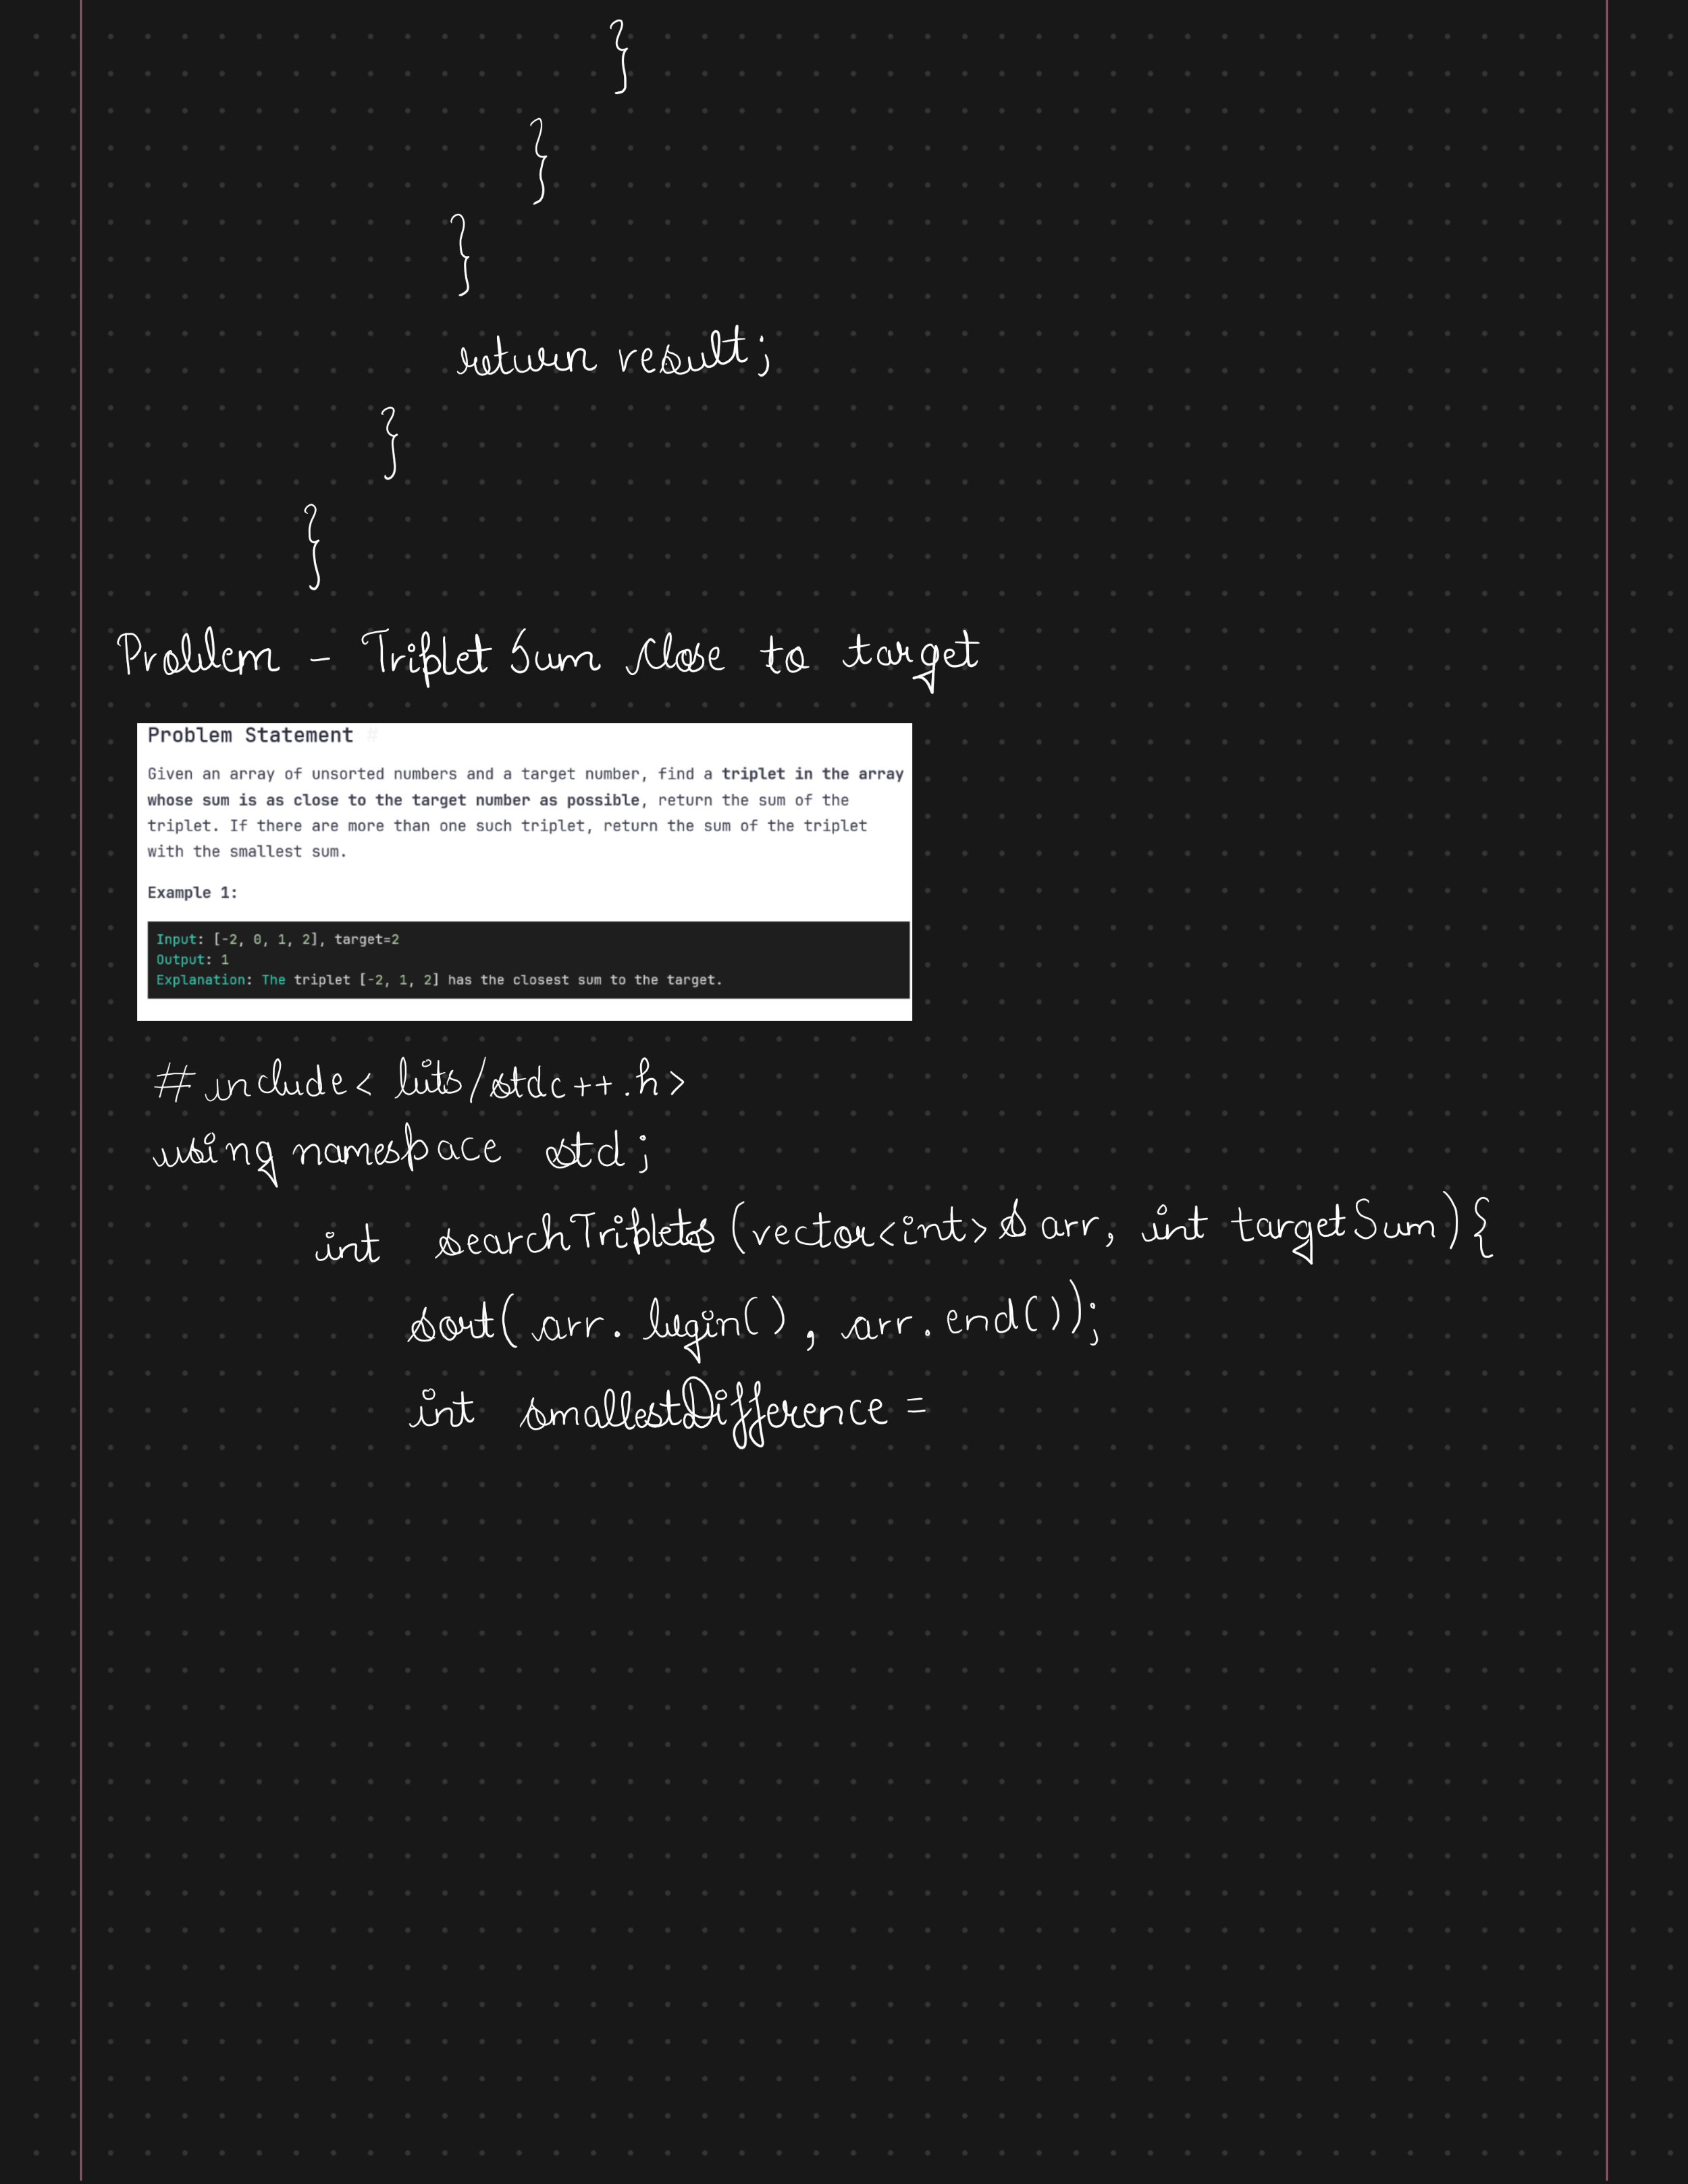 }
}
}
return result;
}
}
Problem - Triplet Sum Close to target
Problem Statement #
Given an array of unsorted numbers and a target number, find a triplet in the array
whose sum is as close to the target number as possible, return the sum of the
triplet. If there are more than one such triplet, return the sum of the triplet
with the smallest sum.
Example 1:
Input: [-2, 0, 1, 2], target=2
Output: 1
Explanation: The triplet [-2, 1, 2] has the closest sum to the target.
#include< bits/stdc++.h>
using namespace std;
int searchTriplets(vector<int>& arr, int targetSum){
sort(arr.begin(), arr.end());
int smallestDifference =